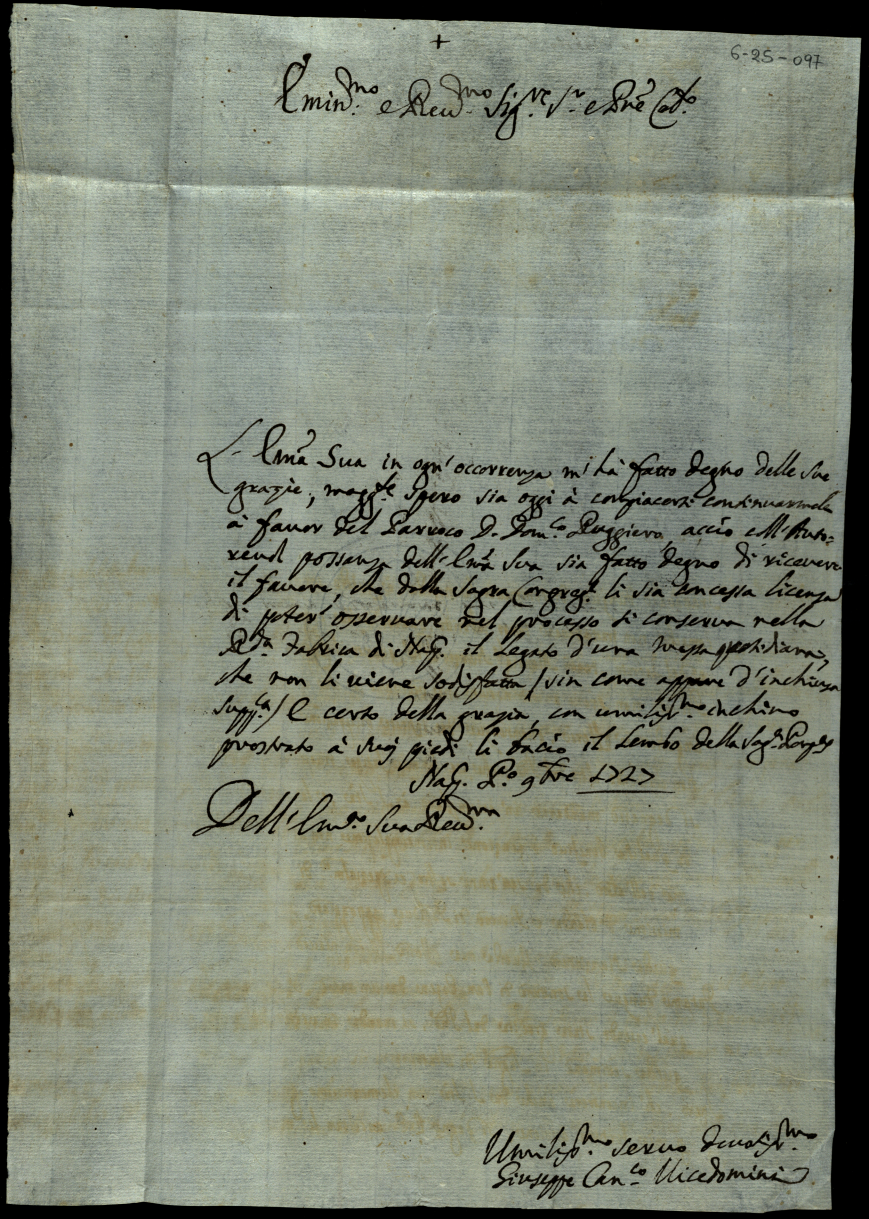 +
6-25-097
Emin.mo e Reu.mo Sig.re S.r e Pre Col.mo
L'Emã Sua in ogn'occorrenza m'hà fatto degno delle sue
grazie, magg.te spero sia oggi à compiacersi continuarmela
à favor del Parroco D. Dom.co Ruggiero, acciò coll'Auto=
revol possanza dell'Emã Sua sia fatto degno di ricevere
il favore, che dalla Sagra Congreg.e li sia concessa licenza
di poter osservare nel processo si conserva nella
R.da Fabrica di Nap. il Legato d'una messa quotidiana,
che non li viene sodisfatta / sin come appare d'inchiusa
supp.ca / E certo della grazia, con umiliss.mo inchino
prostrato à suoi piedi li bacio il Lembo della Sag.
Nap. P.o 9bre 1727
Dell'Em.a Sua Reu.ma
Umiliss.mo seruo deuotiss.mo
Giuseppe Can.co Vicedomini